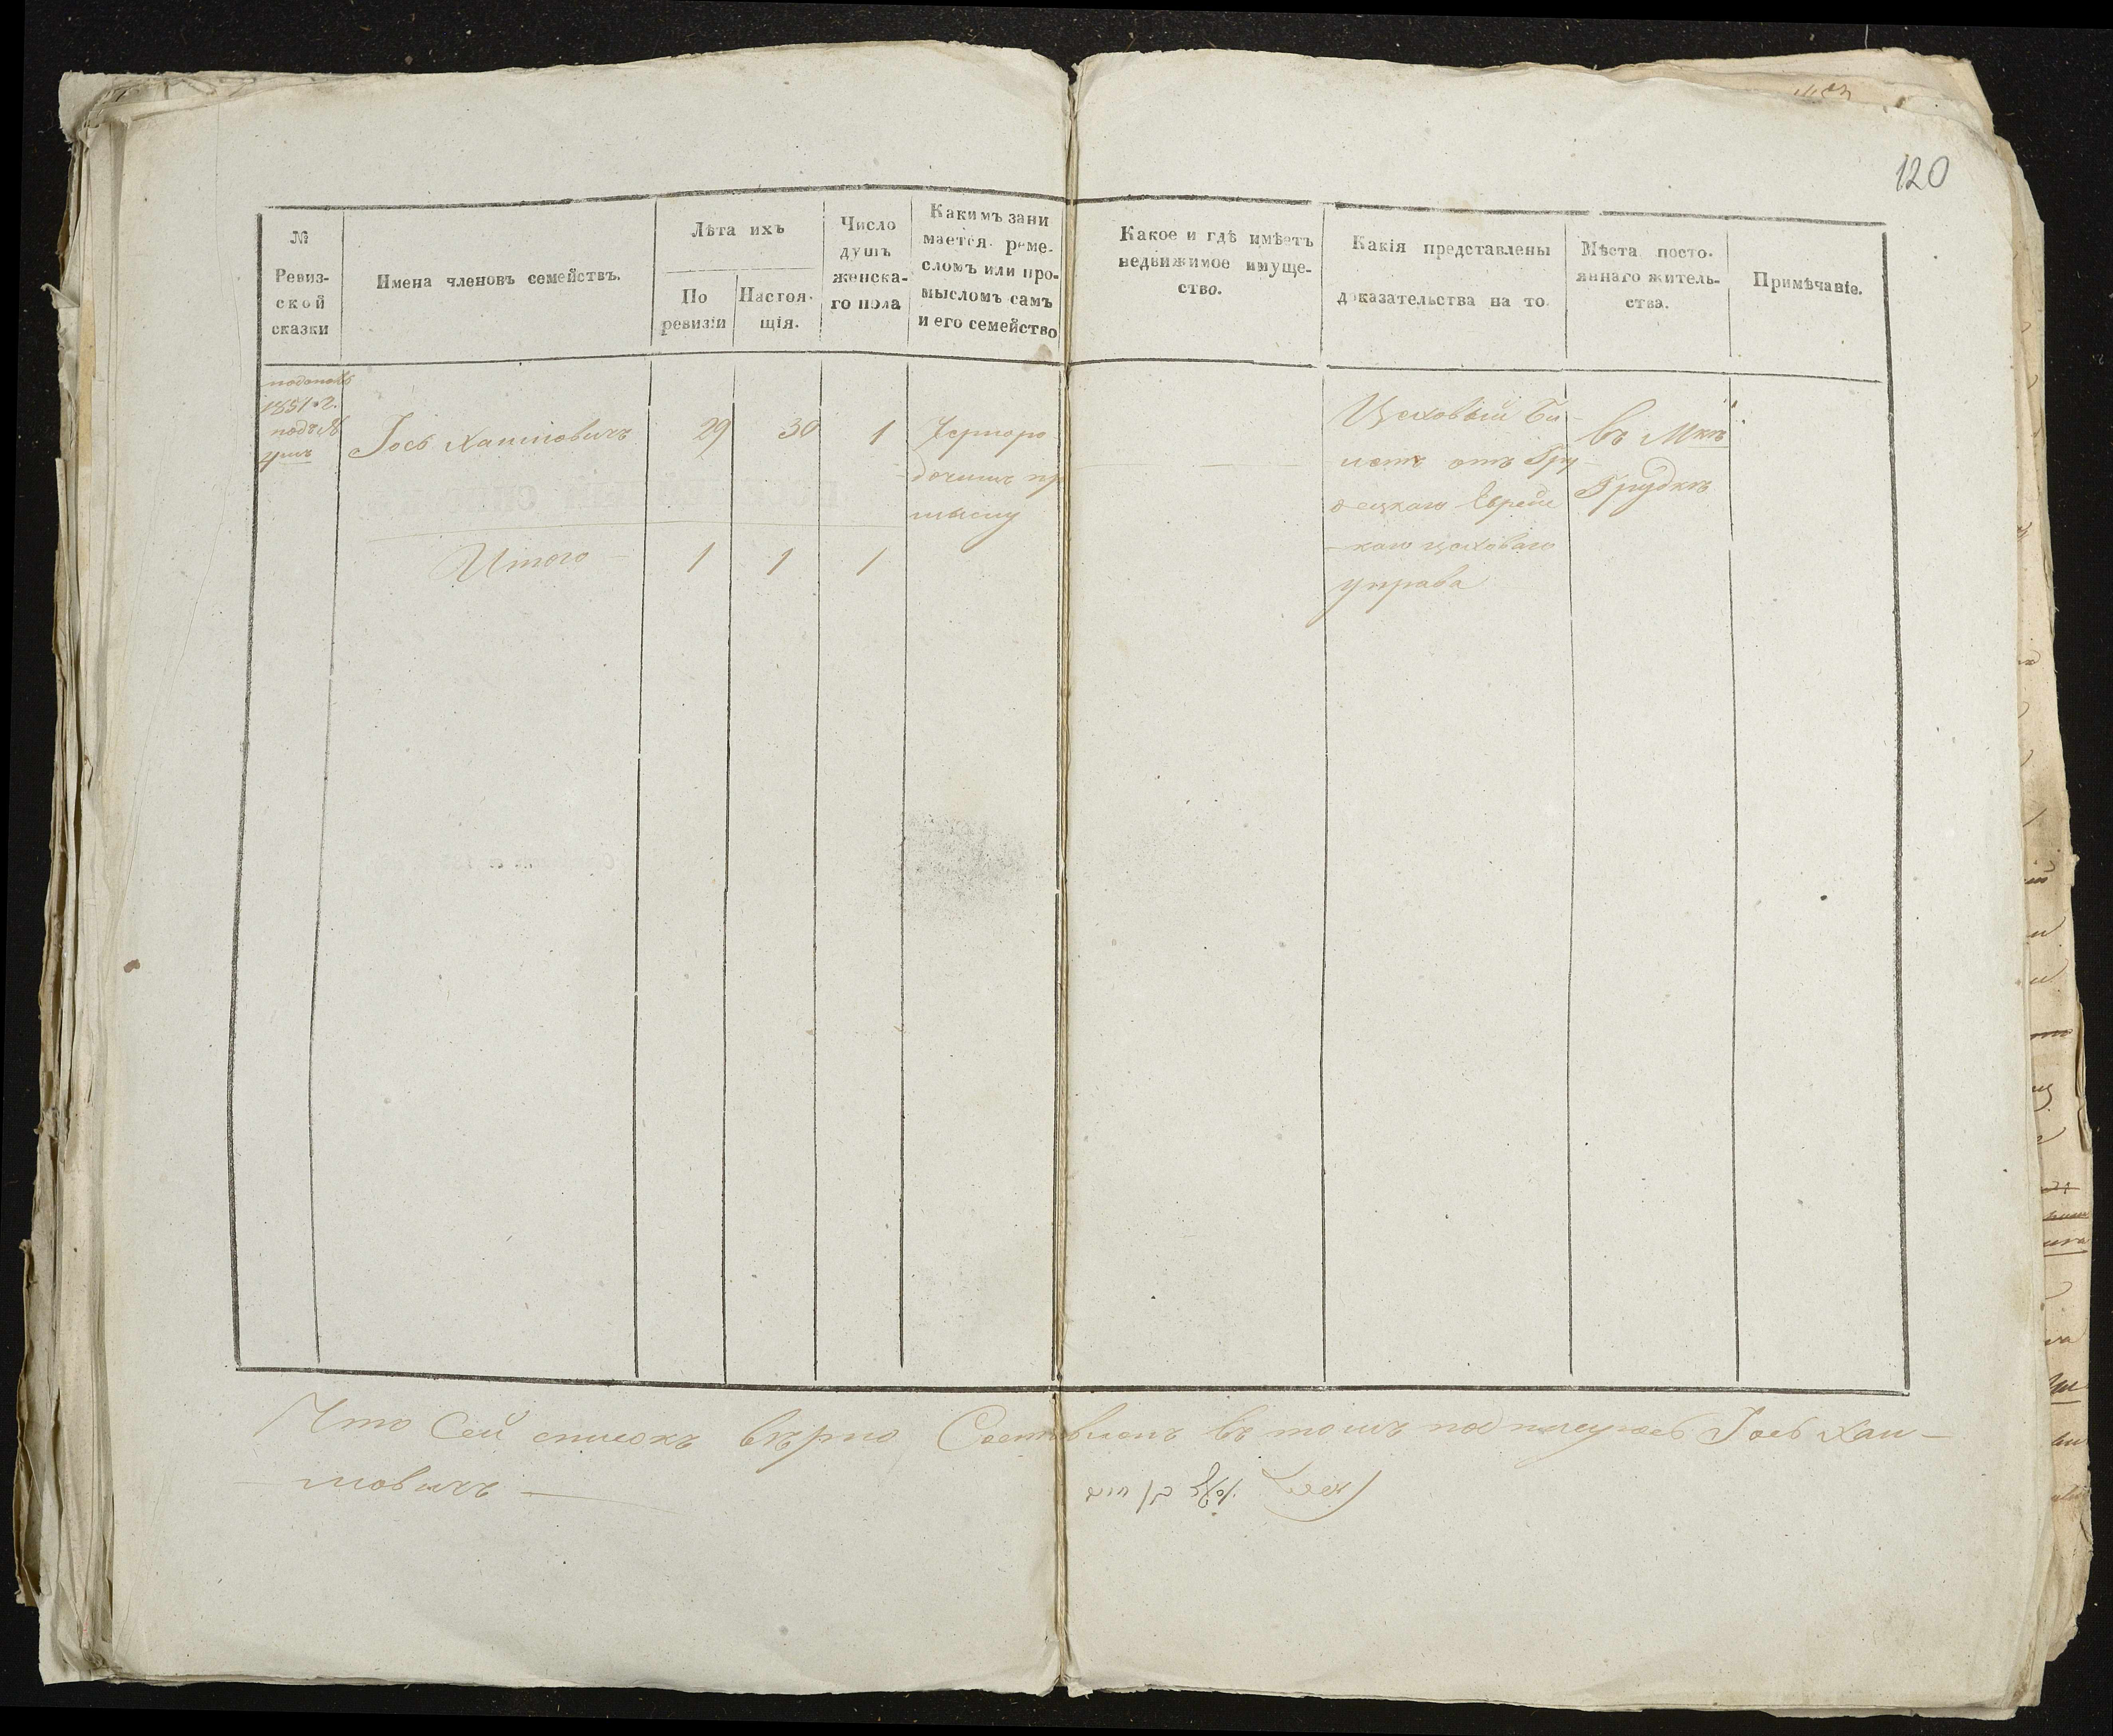 120
№
Ревиз-
ской
сказки
Имена членовъ семействъ.
Лѣта ихъ
По
ревизіи
Настоя-
щія.
Число
душъ
женска-
го пола
Какимъ зани
мается реме-
сломъ или про-
мысломъ самъ
и его семейство
Какое и гдѣ имѣетъ
недвижимое имуще-
ство.
Какія представлены
доказательства на то.
Мѣста посто-
яннаго житель-
ства.
Примѣчаніе.
1851 г.
подъ №
Іосъ Хаимовичъ
29
30
1
мыслу
Цеховый Би-
летъ отъ Гру-
децкаго Еврейс
каго цеховаго
управа
въ Мкѣ
Грудкѣ
Итого
1
1
1
Что Сей списокъ вѣрно Составленъ въ томъ подписуюсь Іосъ Хаи-
мовичъ